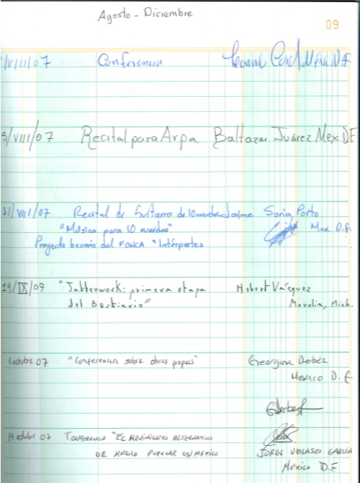 Agosto - Diciembre
09
/VIII/07 Conferencia México D.F
5/VIII/07 Recital para Arpa Baltazar Juárez Mex. D.F
/VIII/07 Recital de Guitarra de 10 cuerdas Jaime Soria Porto
"Música para 10 cuerdas" Mex D.F.
Proyecto becario del FONCA "Intérpretes
14/IX/09 "Jabberwock: primera etapa Hebert Vázquez
del Bestiario" Morelia, Mich.
octubre 07 "Conferencia sobre obras propias" Georgina Derbez
México D.F
octubre 07 Conferencia "El movimiento alternativo
de música popular en México JORGE VELASCO GARCIA
México D.F